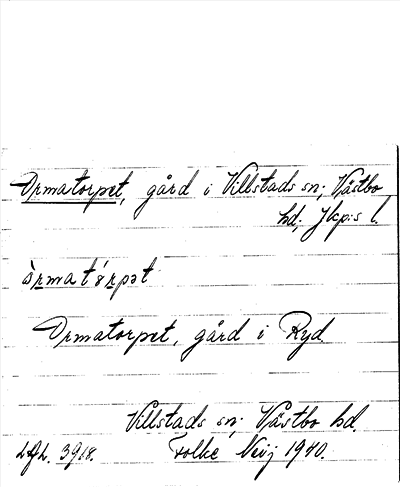 Ormatorpet, gård i Villstads sn; Västbo
hd; Jkp:s l.
òrmatórpət
Ormatorpet, gård i Ryd
Villstads sn; Västbo hd.
LAL. 3918. Folke Nvij 1940.